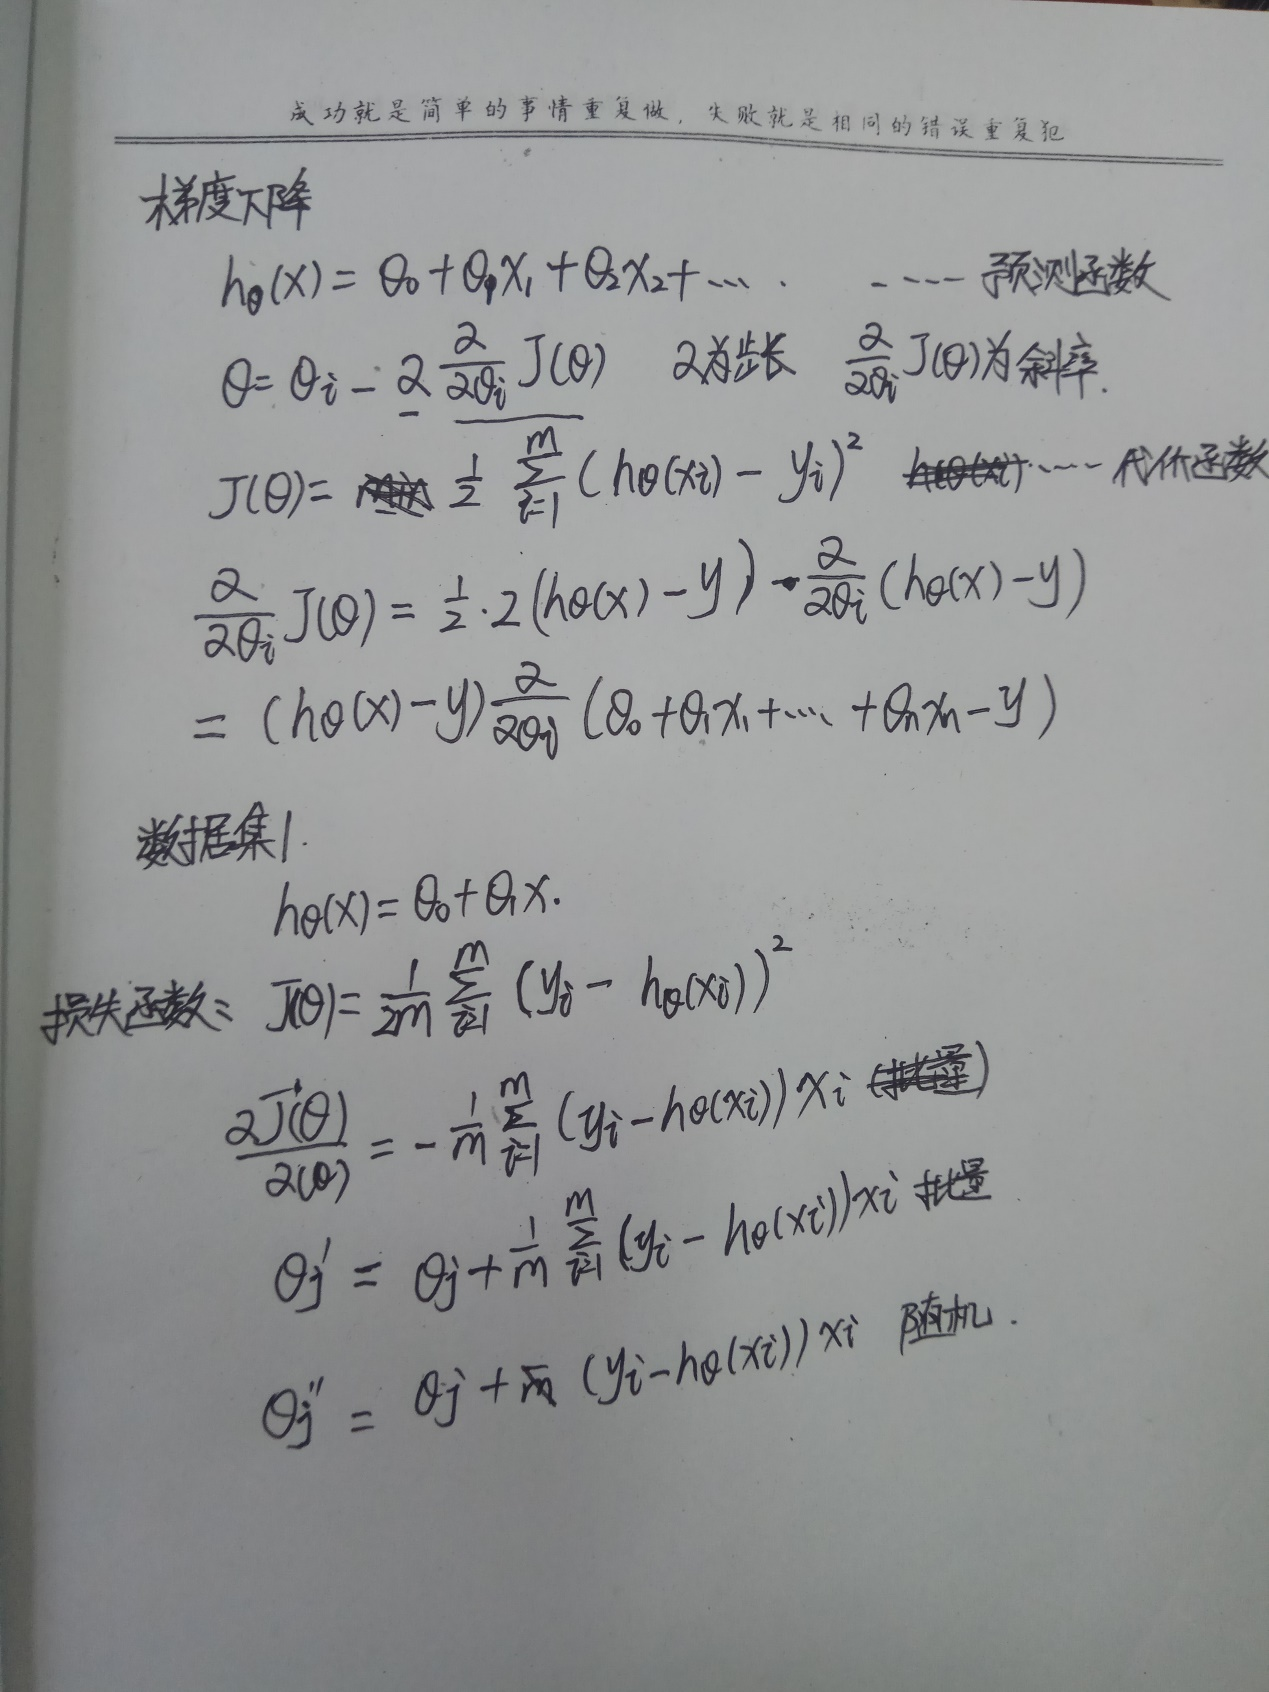 成功就是简单的事情重复做，失败就是相同的错误重复犯
梯度下降
hθ(x) = θ₀ + θ₁x₁ + θ₂x₂ + ···· ---- 预测函数
θ = θi − α ∂/∂θi J(θ) α为步长 ∂/∂θi J(θ)为斜率.
J(θ) = 1/2 Σ_{i=1}^{m} (hθ(xi) − yi)² ····-- 代价函数
∂/∂θi J(θ) = 1/2 · 2(hθ(x) − y) · ∂/∂θi (hθ(x) − y)
= (hθ(x) − y) ∂/∂θi (θ₀ + θ₁x₁ + ···· + θₙxₙ − y)
数据集1.
hθ(x) = θ₀ + θ₁x.
损失函数: J(θ) = 1/2m Σ_{i=1}^{m} (yi − hθ(xi))²
∂J(θ)/∂(θ) = − 1/m Σ_{i=1}^{m} (yi − hθ(xi)) xi
θj′ = θj + 1/m Σ_{i=1}^{m} (yi − hθ(xi)) xi 批量
θj″ = θj + (yi − hθ(xi)) xi 随机.